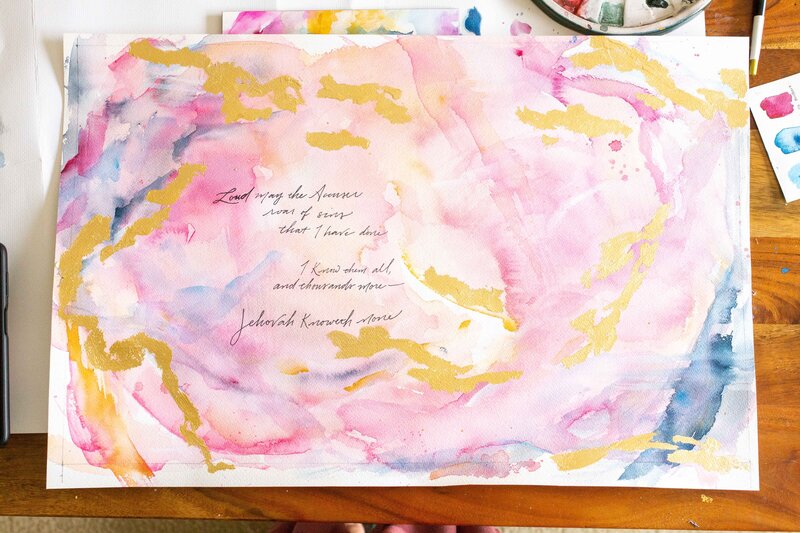 Loud may the Accuser
roar of sins
that I have done
I Know them all,
and thousands more—
Jehovah Knoweth none